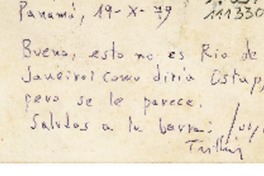 Panamá, 19-X-79
111330
Bueno, esto no es Rio de
Janeiro! como diría Ostap,
pero se le parece.
Saludos a la barra.